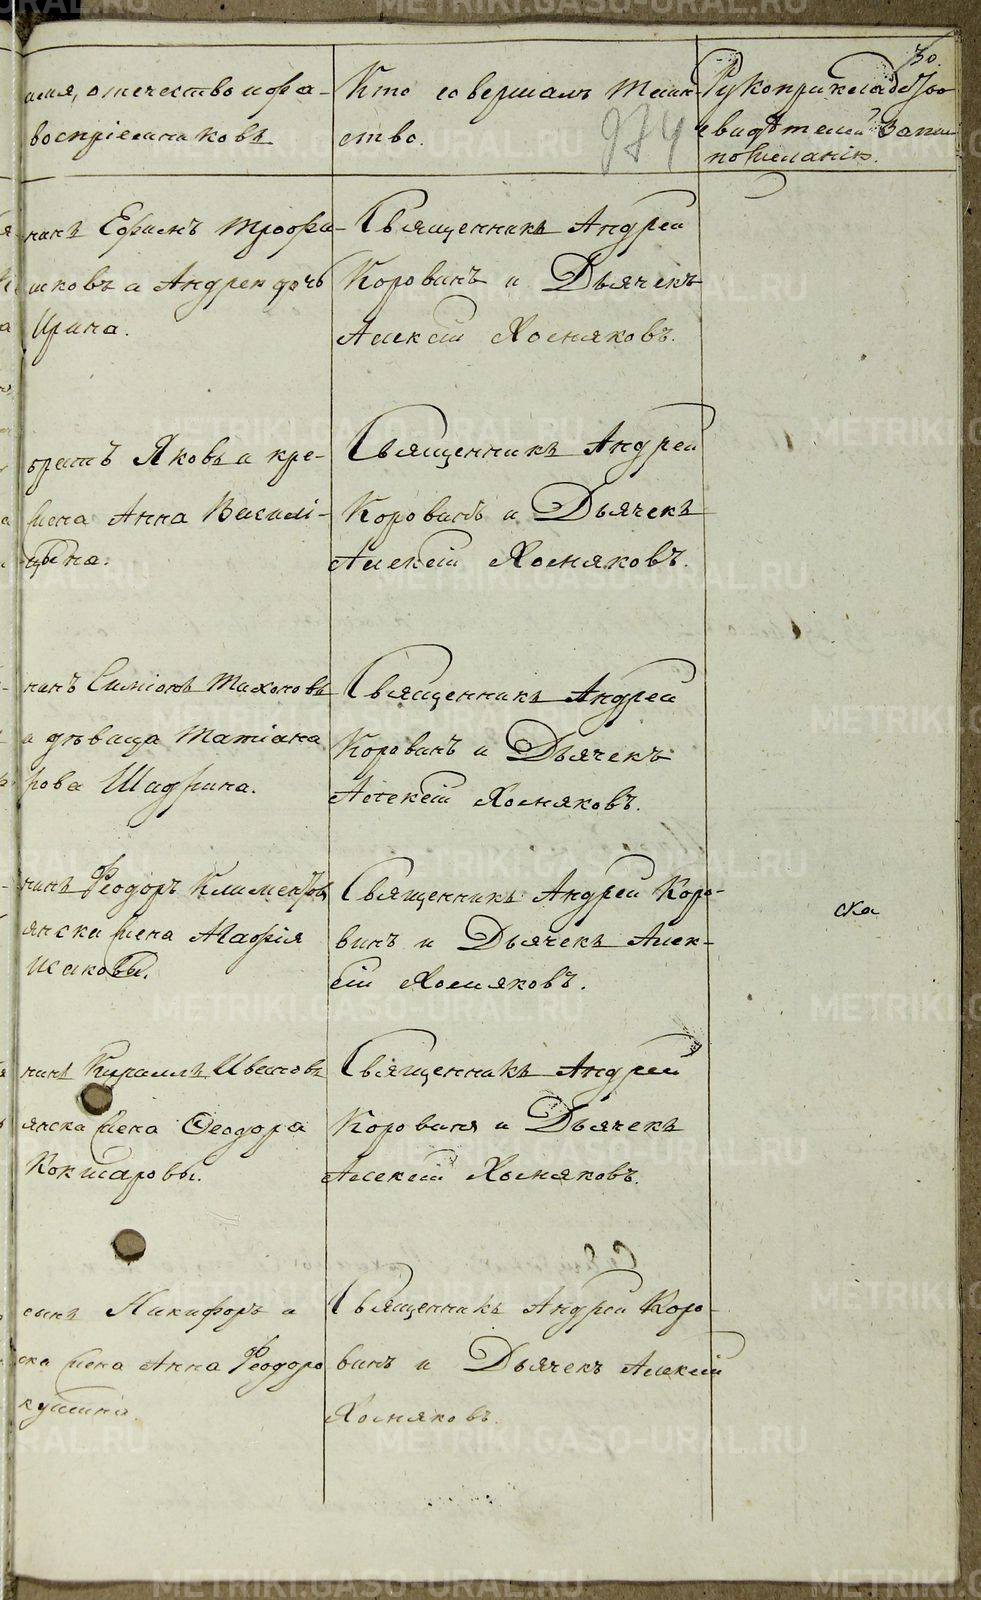 30.
имя, отечество и фа-
воспріемниковъ
Кто совершалъ таин-
ство.
974
Рукоприкладство
свидѣтелей запи
по желанію.
нинъ Ефимъ Трофи-
мовъ и Андреи дочь
Ирина.
Священникъ Андрей
Коровинъ и Дьячекъ
Алексій Хосняковъ.
братъ Яковъ и кре-
жена Анна Василі-
цына.
Священникъ Андрей
Коровинъ и Дьячекъ
Алексій Хосняковъ.
нинъ Симіонъ Тихоновъ
и дѣвица Татіана
рова Шадрина.
Священникъ Андрей
Коровинъ и Дьячекъ
Алексій Хосняковъ.
нинъ Феодоръ Климентовъ
янска жена Агафія
Исаковы.
Священникъ Андрей Коро-
винъ и Дьячекъ Алек-
сій Хосняковъ.
ска
нинъ Кириллъ Ивановъ
янска жена Феодора
Кокшаровы.
Священникъ Андрей
Коровинъ и Дьячекъ
Алексій Хосняковъ.
сынъ Никифоръ и
ска жена Анна Феодоро
кушина.
Священникъ Андрей Коро-
винъ и Дьячекъ Алексій
Хосняковъ.
METRIKI.GASO-URAL.RU